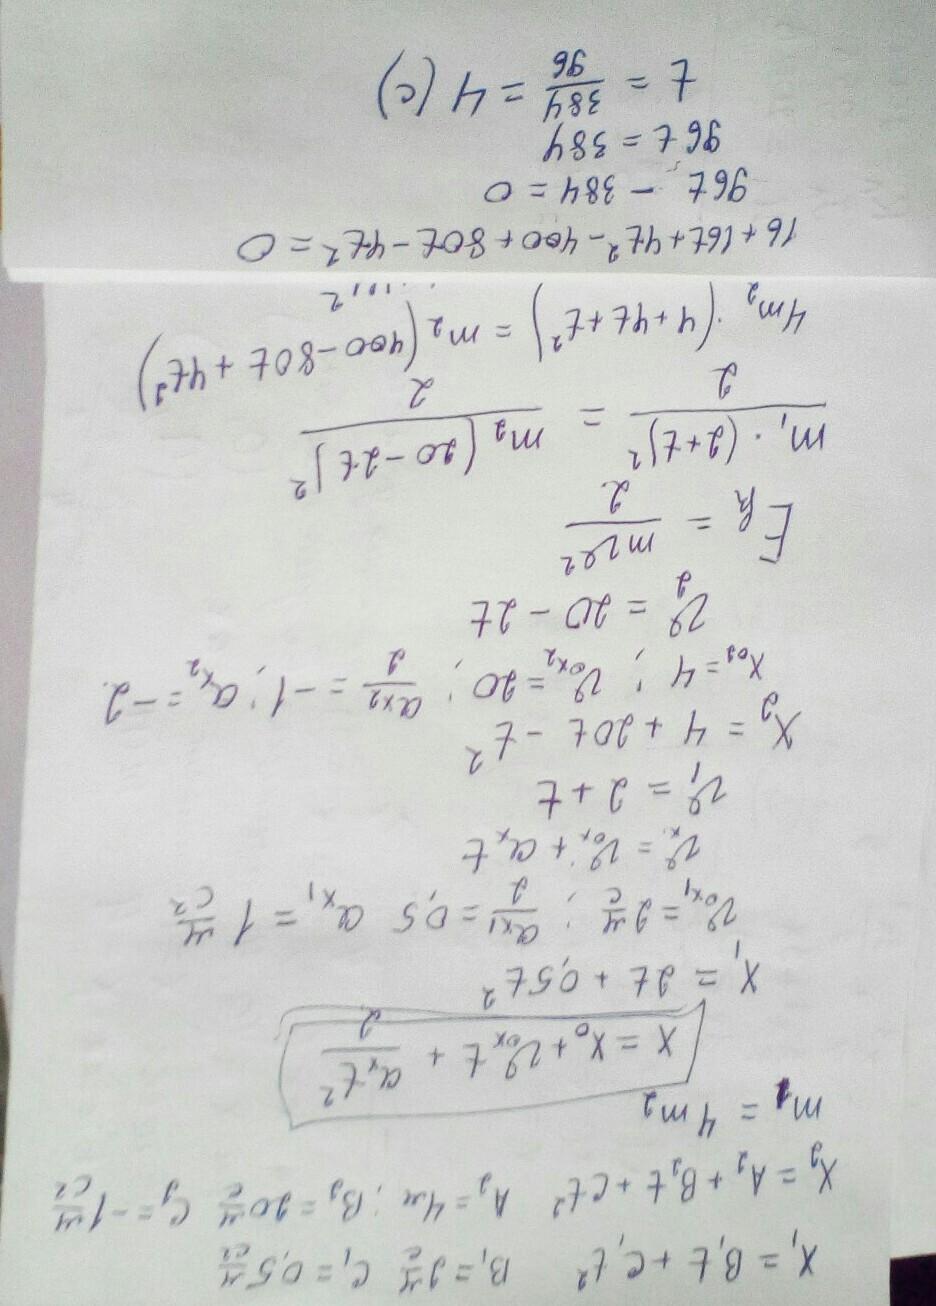 x₁ = B₁t + C₁t² B₁ = 2 м/с C₁ = 0,5 м/с²
x₂ = A₂ + B₂t + Ct² A₂ = 4м ; B₂ = 20 м/с C₂ = -1 м/с²
m₁ = 4m₂
x = x₀ + v₀ₓt + aₓt²/2
x₁ = 2t + 0,5t²
v₀ₓ₁ = 2 м/с ; aₓ₁/2 = 0,5 aₓ₁ = 1 м/с²
vₓ = v₀ₓ + aₓt
v₁ = 2 + t
x₂ = 4 + 20t - t²
x₀₂ = 4 ; v₀ₓ₂ = 20 ; aₓ₂/2 = -1 ; aₓ₂ = -2.
v₂ = 20 - 2t
Eₖ = mv²/2
m₁ · (2+t)²/2 = m₂(20-2t)²/2
4m₂ · (4+4t+t²) = m₂(400-80t+4t²)
16+16t+4t²-400+80t-4t² = 0
96t - 384 = 0
96t = 384
t = 384/96 = 4 (с)